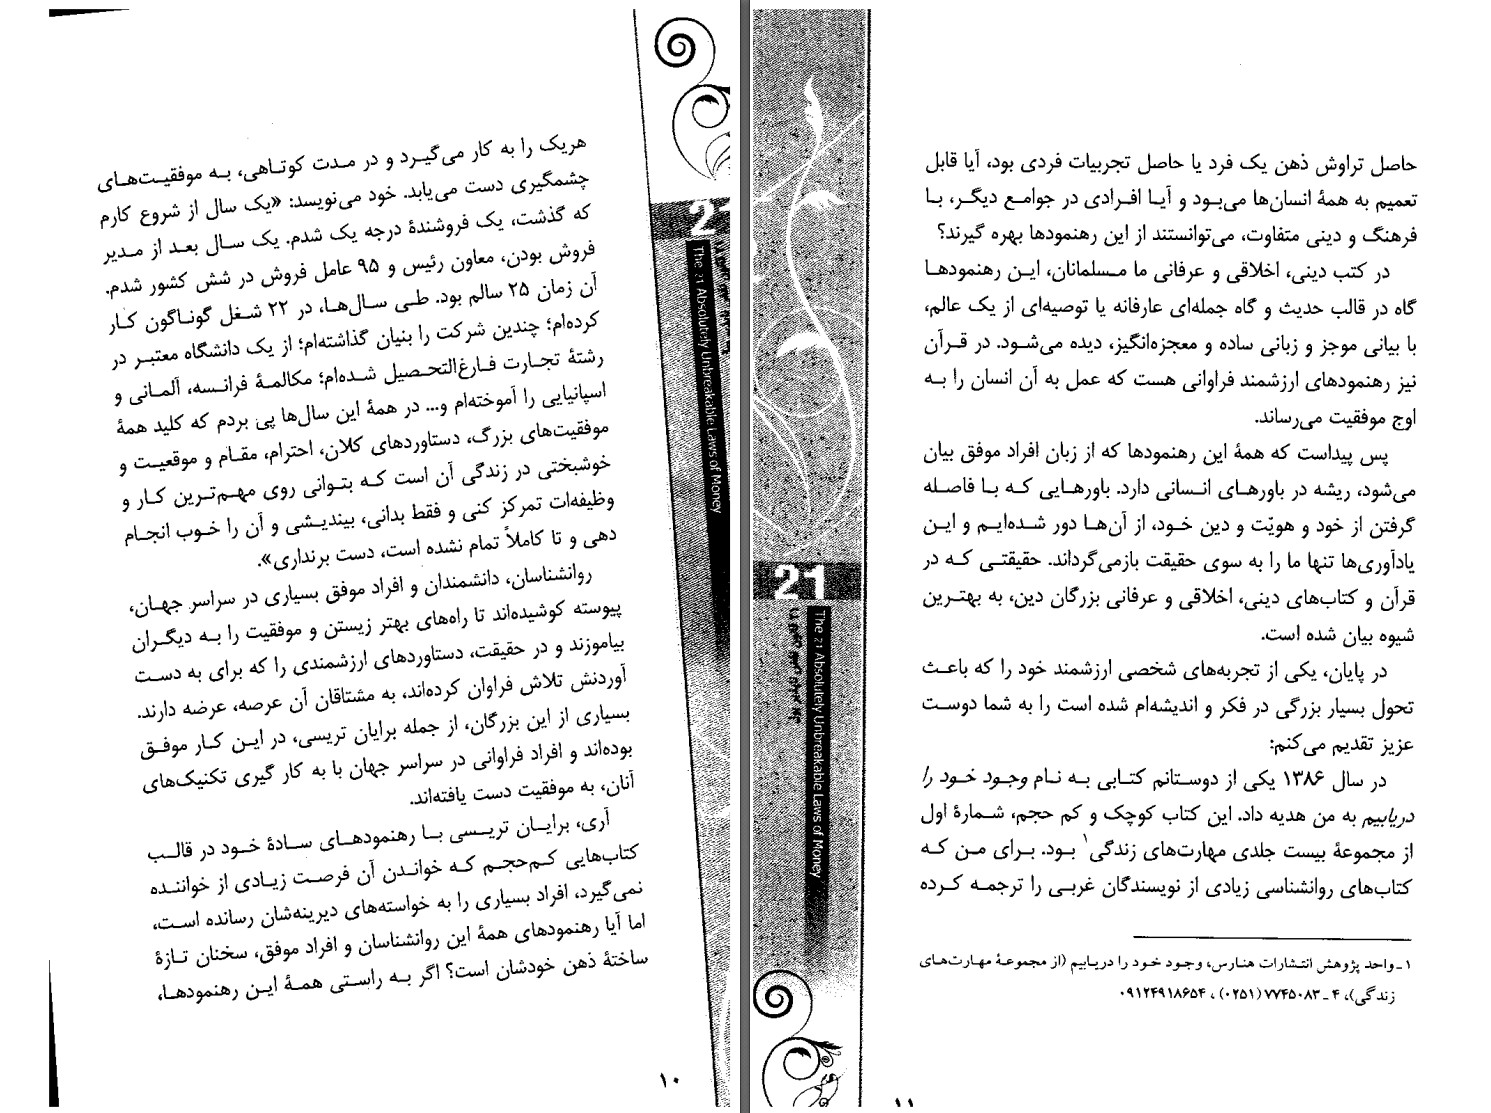 هریک را به کار می‌گیرد و در مدت کوتاهی، به موفقیت‌های
چشمگیری دست می‌یابد. خود می‌نویسد: «یک سال از شروع کارم
که گذشت، یک فروشندهٔ درجه یک شدم. یک سال بعد از مدیر
فروش بودن، معاون رئیس و ۹۵ عامل فروش در شش کشور شدم.
آن زمان ۲۵ سالم بود. طی سال‌ها، در ۲۲ شغل گوناگون کار
کرده‌ام؛ چندین شرکت را بنیان گذاشته‌ام؛ از یک دانشگاه معتبر در
رشتهٔ تجارت فارغ‌التحصیل شده‌ام؛ مکالمهٔ فرانسه، آلمانی و
اسپانیایی را آموخته‌ام و... در همهٔ این سال‌ها پی بردم که کلید همهٔ
موفقیت‌های بزرگ، دستاوردهای کلان، احترام، مقام و موقعیت و
خوشبختی در زندگی آن است که بتوانی روی مهم‌ترین کار و
وظیفه‌ات تمرکز کنی و فقط بدانی، بیندیشی و آن را خوب انجام
دهی و تا کاملاً تمام نشده است، دست برنداری».
روانشناسان، دانشمندان و افراد موفق بسیاری در سراسر جهان،
پیوسته کوشیده‌اند تا راه‌های بهتر زیستن و موفقیت را به دیگران
بیاموزند و در حقیقت، دستاوردهای ارزشمندی را که برای به دست
آوردنش تلاش فراوان کرده‌اند، به مشتاقان آن عرصه، عرضه دارند.
بسیاری از این بزرگان، از جمله برایان تریسی، در این کار موفق
بوده‌اند و افراد فراوانی در سراسر جهان با به کار گیری تکنیک‌های
آنان، به موفقیت دست یافته‌اند.
آری، برایان تریسی با رهنمودهای سادهٔ خود در قالب
کتاب‌هایی کم‌حجم که خواندن آن فرصت زیادی از خواننده
نمی‌گیرد، افراد بسیاری را به خواسته‌های دیرینه‌شان رسانده است،
اما آیا رهنمودهای همهٔ این روانشناسان و افراد موفق، سخنان تازهٔ
ساختهٔ ذهن خودشان است؟ اگر به راستی همهٔ این رهنمودها،
۱۰
21
The 21 Absolutely Unbreakable Laws of Money
حاصل تراوش ذهن یک فرد یا حاصل تجربیات فردی بود، آیا قابل
تعمیم به همهٔ انسان‌ها می‌بود و آیا افرادی در جوامع دیگر، با
فرهنگ و دینی متفاوت، می‌توانستند از این رهنمودها بهره گیرند؟
در کتب دینی، اخلاقی و عرفانی ما مسلمانان، این رهنمودها
گاه در قالب حدیث و گاه جمله‌ای عارفانه یا توصیه‌ای از یک عالم،
با بیانی موجز و زبانی ساده و معجزه‌انگیز، دیده می‌شود. در قرآن
نیز رهنمودهای ارزشمند فراوانی هست که عمل به آن انسان را به
اوج موفقیت می‌رساند.
پس پیداست که همهٔ این رهنمودها که از زبان افراد موفق بیان
می‌شود، ریشه در باورهای انسانی دارد. باورهایی که با فاصله
گرفتن از خود و هویّت و دین خود، از آن‌ها دور شده‌ایم و این
یادآوری‌ها تنها ما را به سوی حقیقت بازمی‌گرداند. حقیقتی که در
قرآن و کتاب‌های دینی، اخلاقی و عرفانی بزرگان دین، به بهترین
شیوه بیان شده است.
در پایان، یکی از تجربه‌های شخصی ارزشمند خود را که باعث
تحول بسیار بزرگی در فکر و اندیشه‌ام شده است را به شما دوست
عزیز تقدیم می‌کنم:
در سال ۱۳۸۶ یکی از دوستانم کتابی به نام وجود خود را
دریابیم به من هدیه داد. این کتاب کوچک و کم حجم، شمارهٔ اول
از مجموعهٔ بیست جلدی مهارت‌های زندگی۱ بود. برای من که
کتاب‌های روانشناسی زیادی از نویسندگان غربی را ترجمه کرده
۱ـ واحد پژوهش انتشارات هنارس، وجود خود را دریابیم (از مجموعهٔ مهارت‌های
زندگی)، ۴ ـ ۷۷۴۵۰۸۳ (۰۲۵۱) ، ۰۹۱۲۴۹۱۸۶۵۴
۱۱
21
The 21 Absolutely Unbreakable Laws of Money